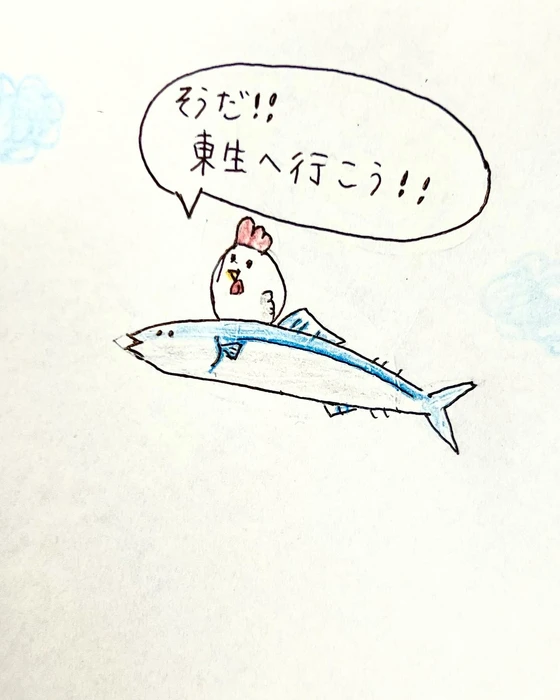 そうだ!!
東生へ行こう!!